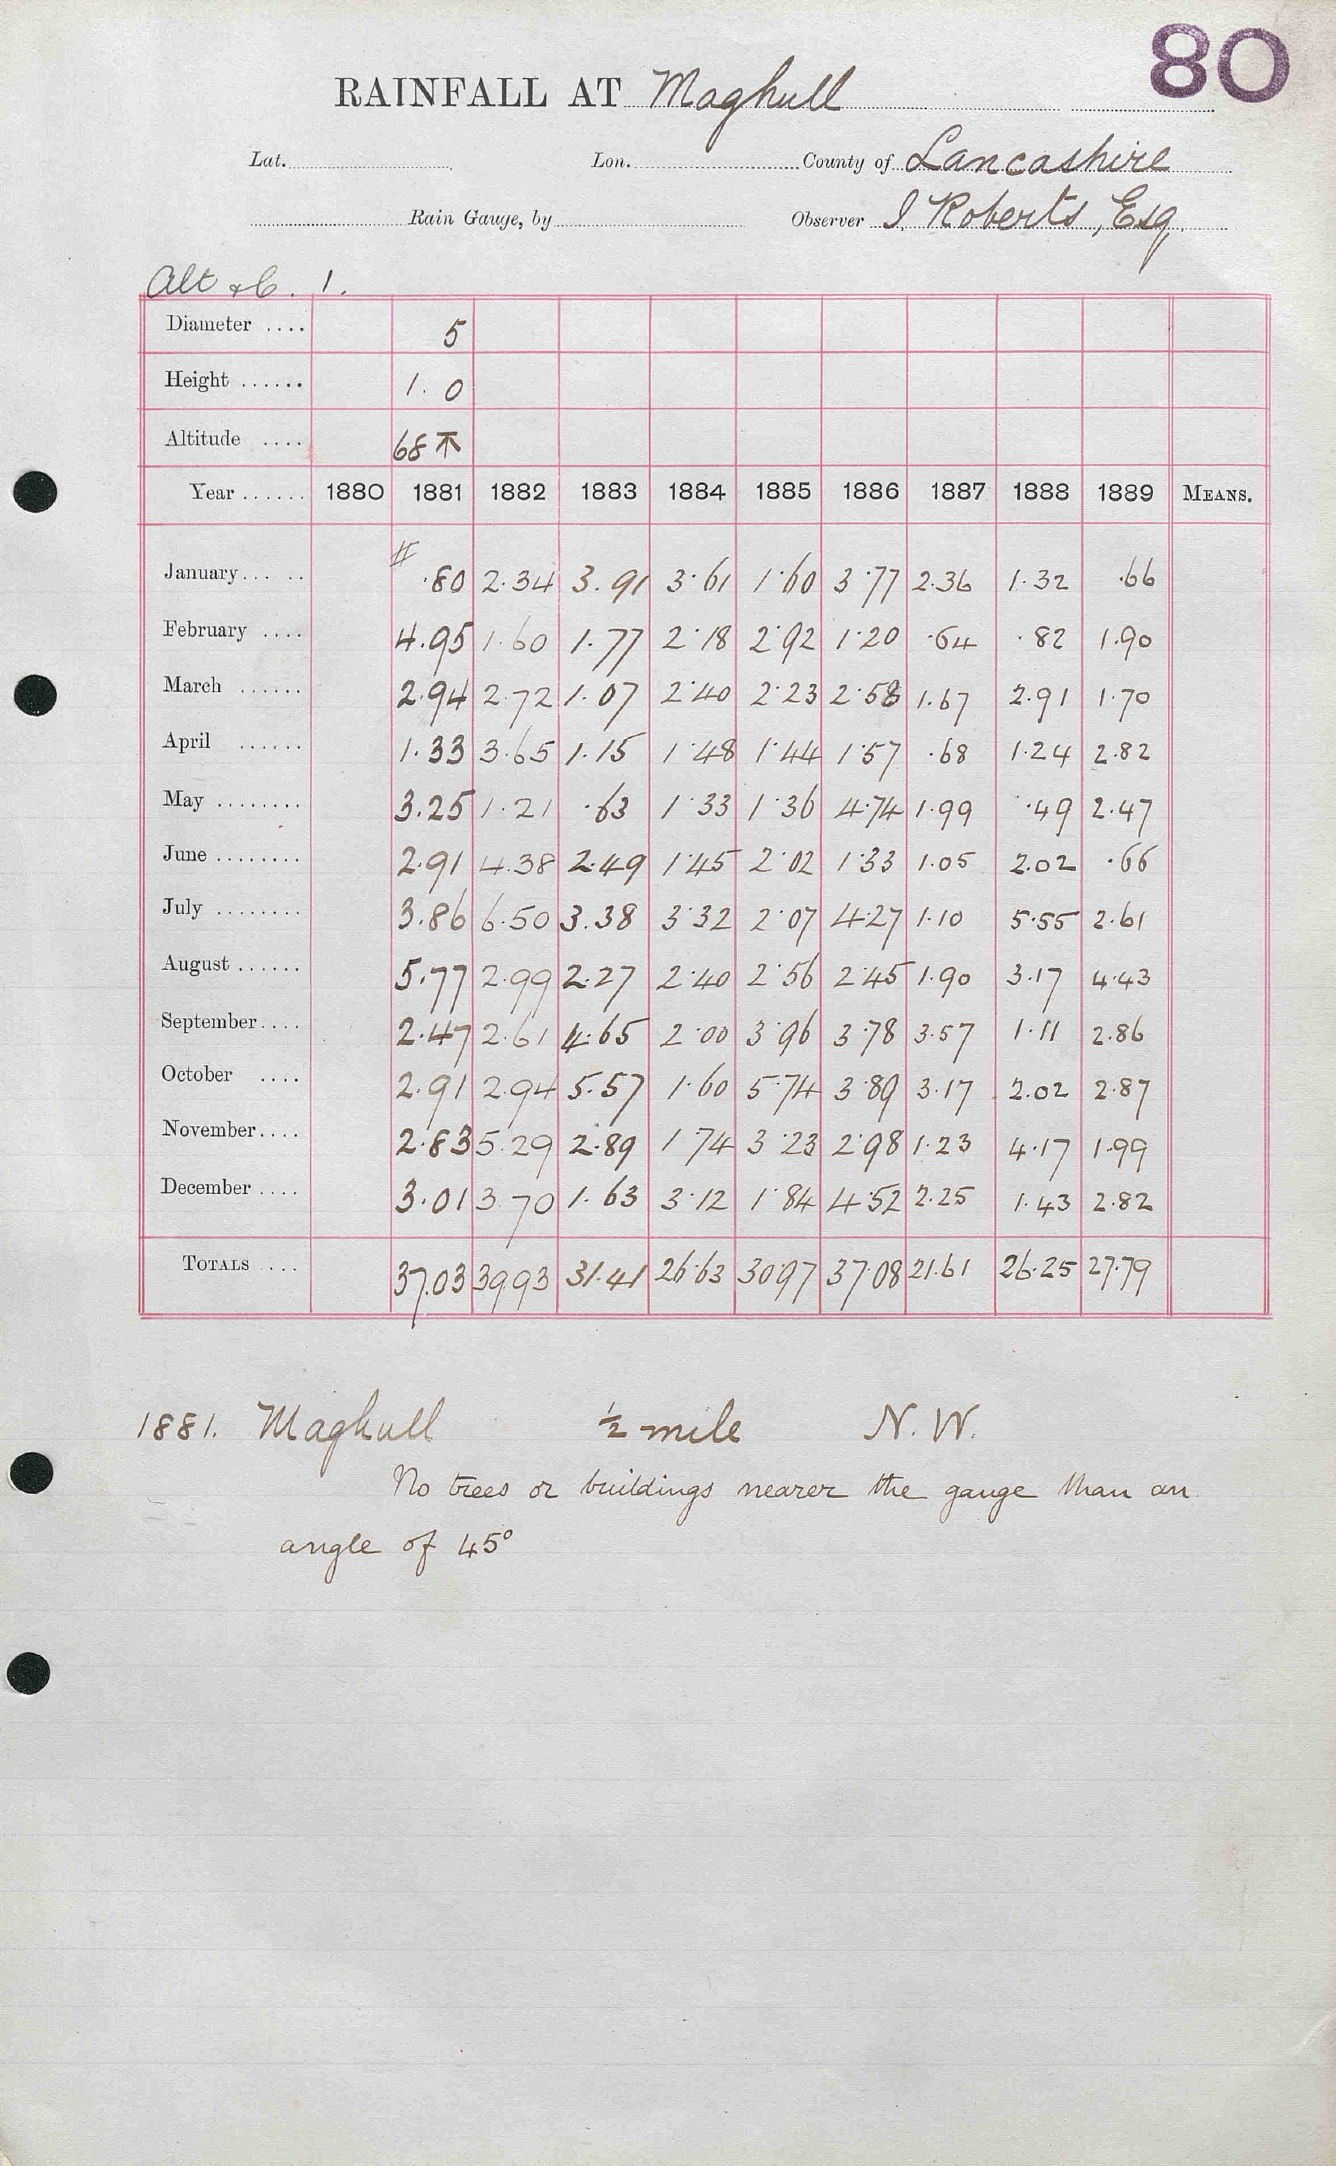 80
RAINFALL AT Maghull
Lat. Lon. County of Lancashire
Rain Gauge, by Observer I. Roberts, Esq.
Alt &c. 1.
Diameter .... 5
Height ...... 1. 0
Altitude .... 68
Year ...... 1880 1881 1882 1883 1884 1885 1886 1887 1888 1889 MEANS.
January... .. # .80 2.34 3.91 3.61 1.60 3.77 2.36 1.32 .66
February .... 4.95 1.60 1.77 2.18 2.92 1.20 .64 .82 1.90
March ...... 2.94 2.72 1.07 2.40 2.23 2.58 1.67 2.91 1.70
April ...... 1.33 3.65 1.15 1.48 1.44 1.57 .68 1.24 2.82
May ........ 3.25 1.21 .63 1.33 1.36 4.74 1.99 .49 2.47
June ........ 2.91 4.38 2.49 1.45 2.02 1.33 1.05 2.02 .66
July ........ 3.86 6.50 3.38 3.32 2.07 4.27 1.10 5.55 2.61
August ...... 5.77 2.99 2.27 2.40 2.56 2.45 1.90 3.17 4.43
September.... 2.47 2.61 4.65 2.00 3.96 3.78 3.57 1.11 2.86
October .... 2.91 2.94 5.57 1.60 5.74 3.89 3.17 2.02 2.87
November.... 2.83 5.29 2.89 1.74 3.23 2.98 1.23 4.17 1.99
December .... 3.01 3.70 1.63 3.12 1.84 4.52 2.25 1.43 2.82
TOTALS .... 37.03 39.93 31.41 26.63 30.97 37.08 21.61 26.25 27.79
1881. Maghull ½ mile N.W.
No trees or buildings nearer the gauge than an
angle of 45°